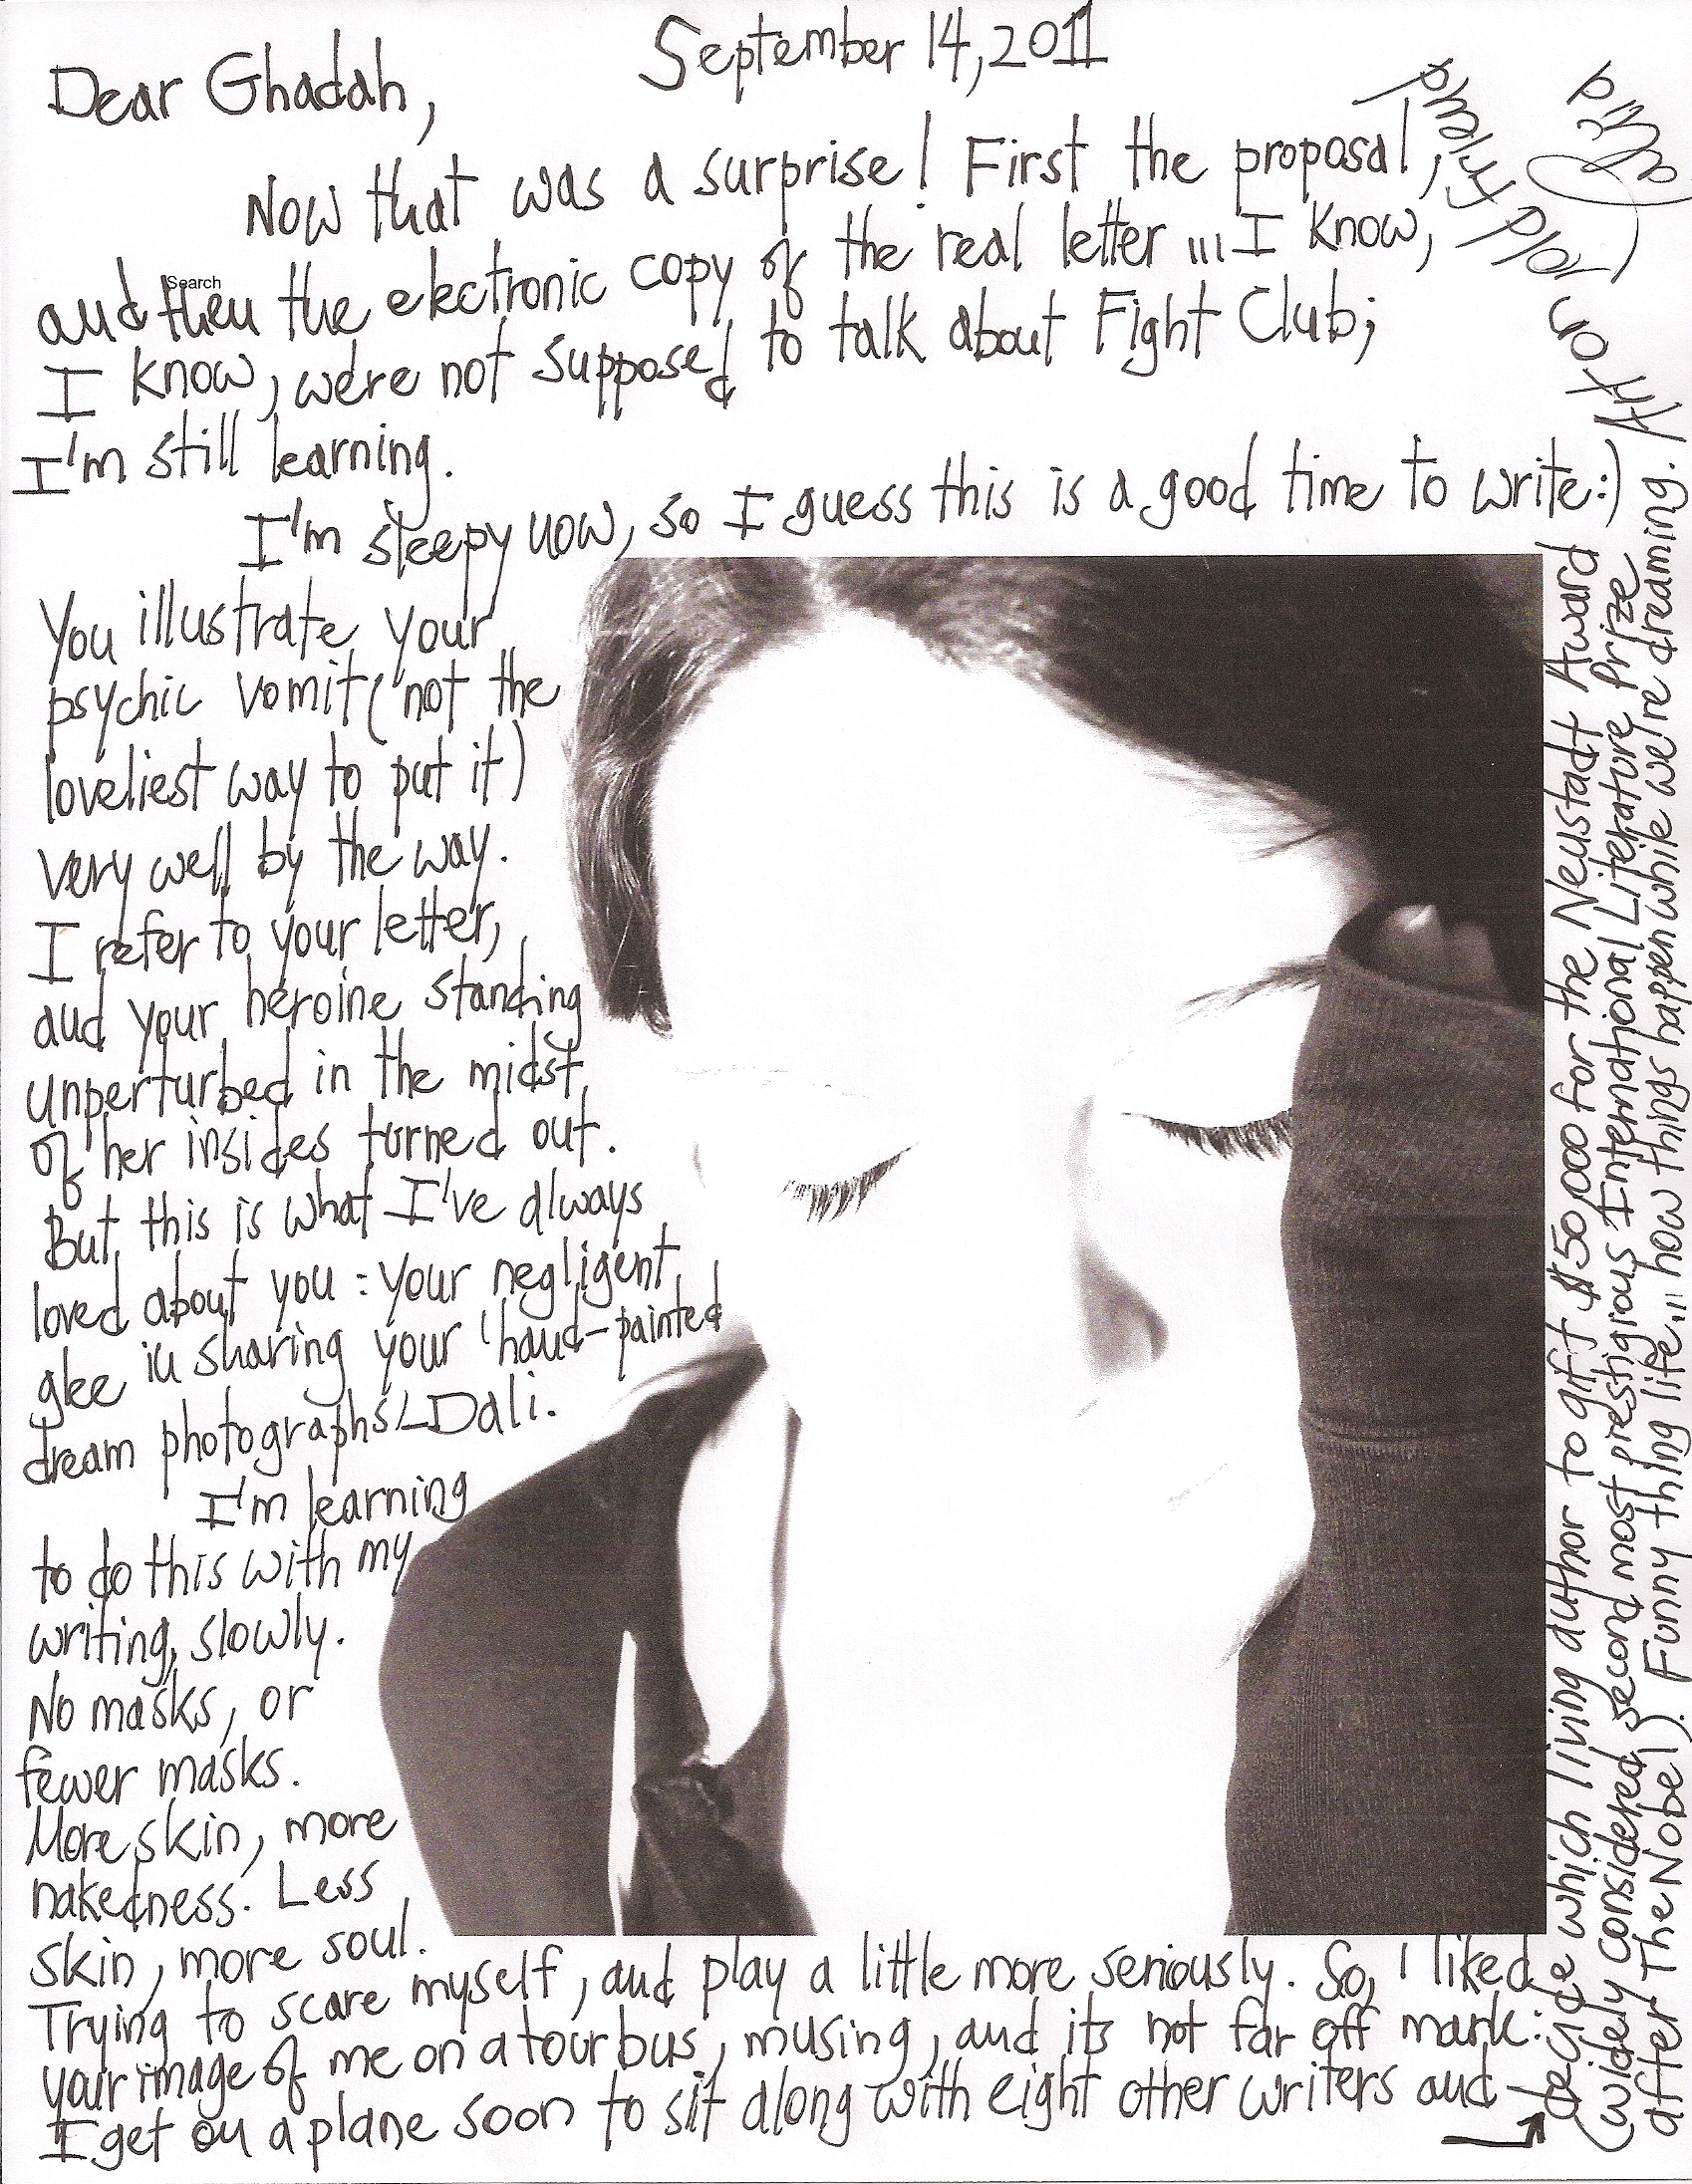 September 14, 2011
Dear Ghadah,
Now that was a surprise! First the proposal,
and then the electronic copy of the real letter ... I know,
Search
I know, we're not supposed to talk about Fight Club;
I'm still learning.
I'm sleepy now, so I guess this is a good time to write:)
You illustrate your
psychic vomit (not the
loveliest way to put it)
very well by the way.
I refer to your letter,
and your heroine standing
unperturbed in the midst
of her insides turned out.
But this is what I've always
loved about you: your negligent
glee in sharing your 'hand-painted
dream photographs' - Dali.
I'm learning
to do this with my
writing, slowly.
No masks, or
fewer masks.
More skin, more
nakedness. Less
skin, more soul.
Trying to scare myself, and play a little more seriously. So, I liked
your image of me on a tour bus, musing, and its not far off mark:
I get on a plane soon to sit along with eight other writers and
decide which living author to gift $50,000 for the Neustadt Award
(widely considered second most prestigious International Literature Prize
after The Nobel). Funny thing life... how things happen while we're dreaming.
Art on, old friend